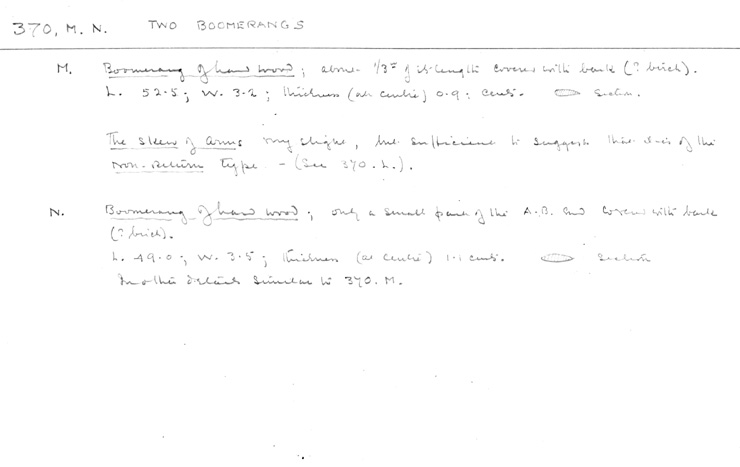 370, M. N. TWO BOOMERANGS
M. Boomerang of hard wood; about 1/3rd of its length covered with bark (? birch).
L. 52.5; W. 3.2; thickness (at centre) 0.9; cents. Section.
The skew of arms very slight, but sufficient to suggest that it is of the
non-return type - (See 370.L.).
N. Boomerang of hard wood; only a small part of the A.B. end covered with bark
(? birch).
L. 49.0; W. 3.5; thickness (at centre) 1.1 cents. Section
In other details similar to 370.M.